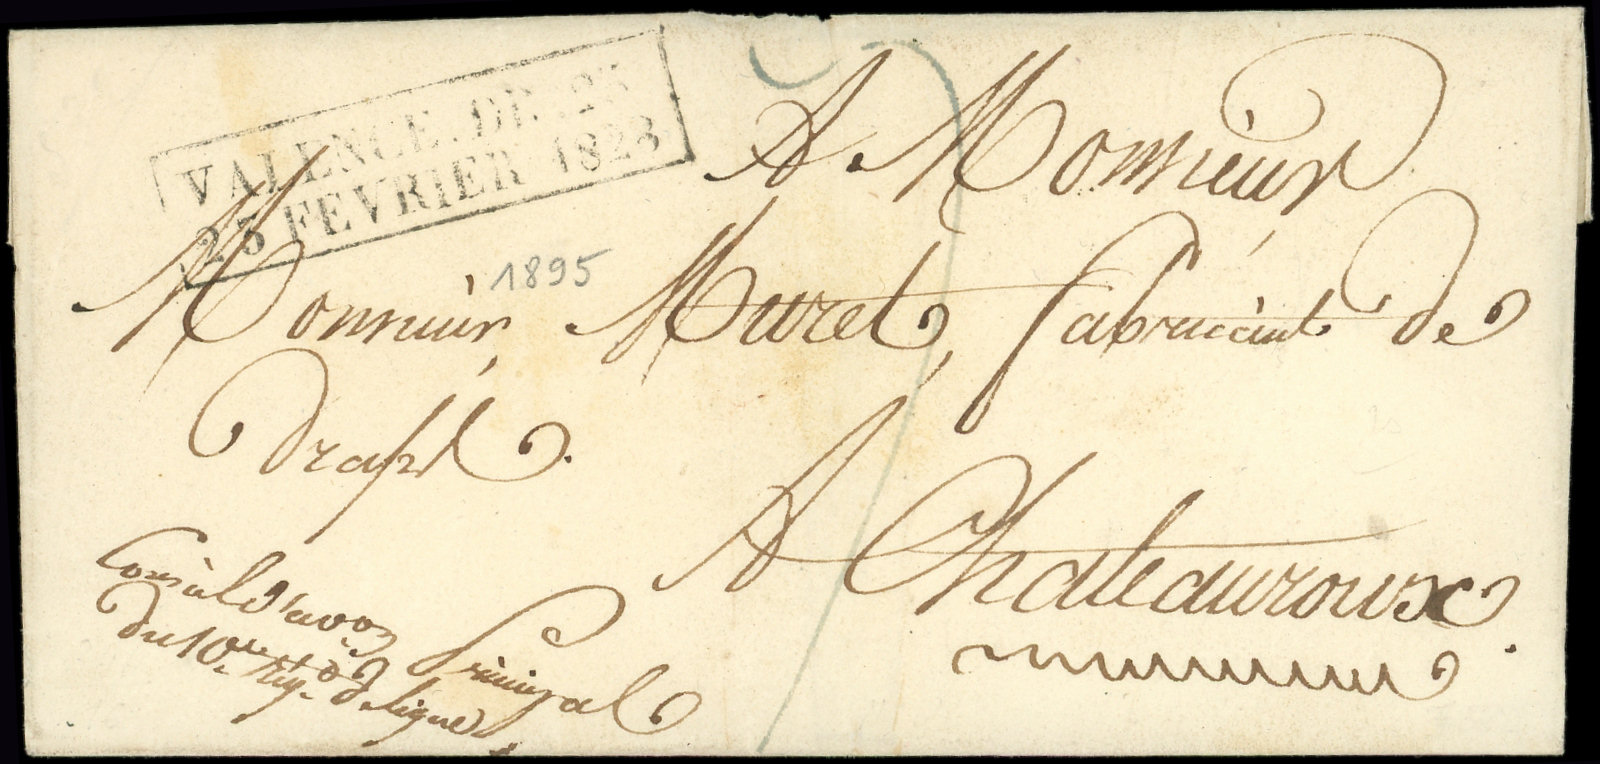 VALENCE.DE.25
25 FEVRIER 1828
A Monsieur
1895
Monsieur, Muret, fabricant de
draps.
A Chateauroux.
Conseil d'adon Principal
du 10.me Regt. de ligne